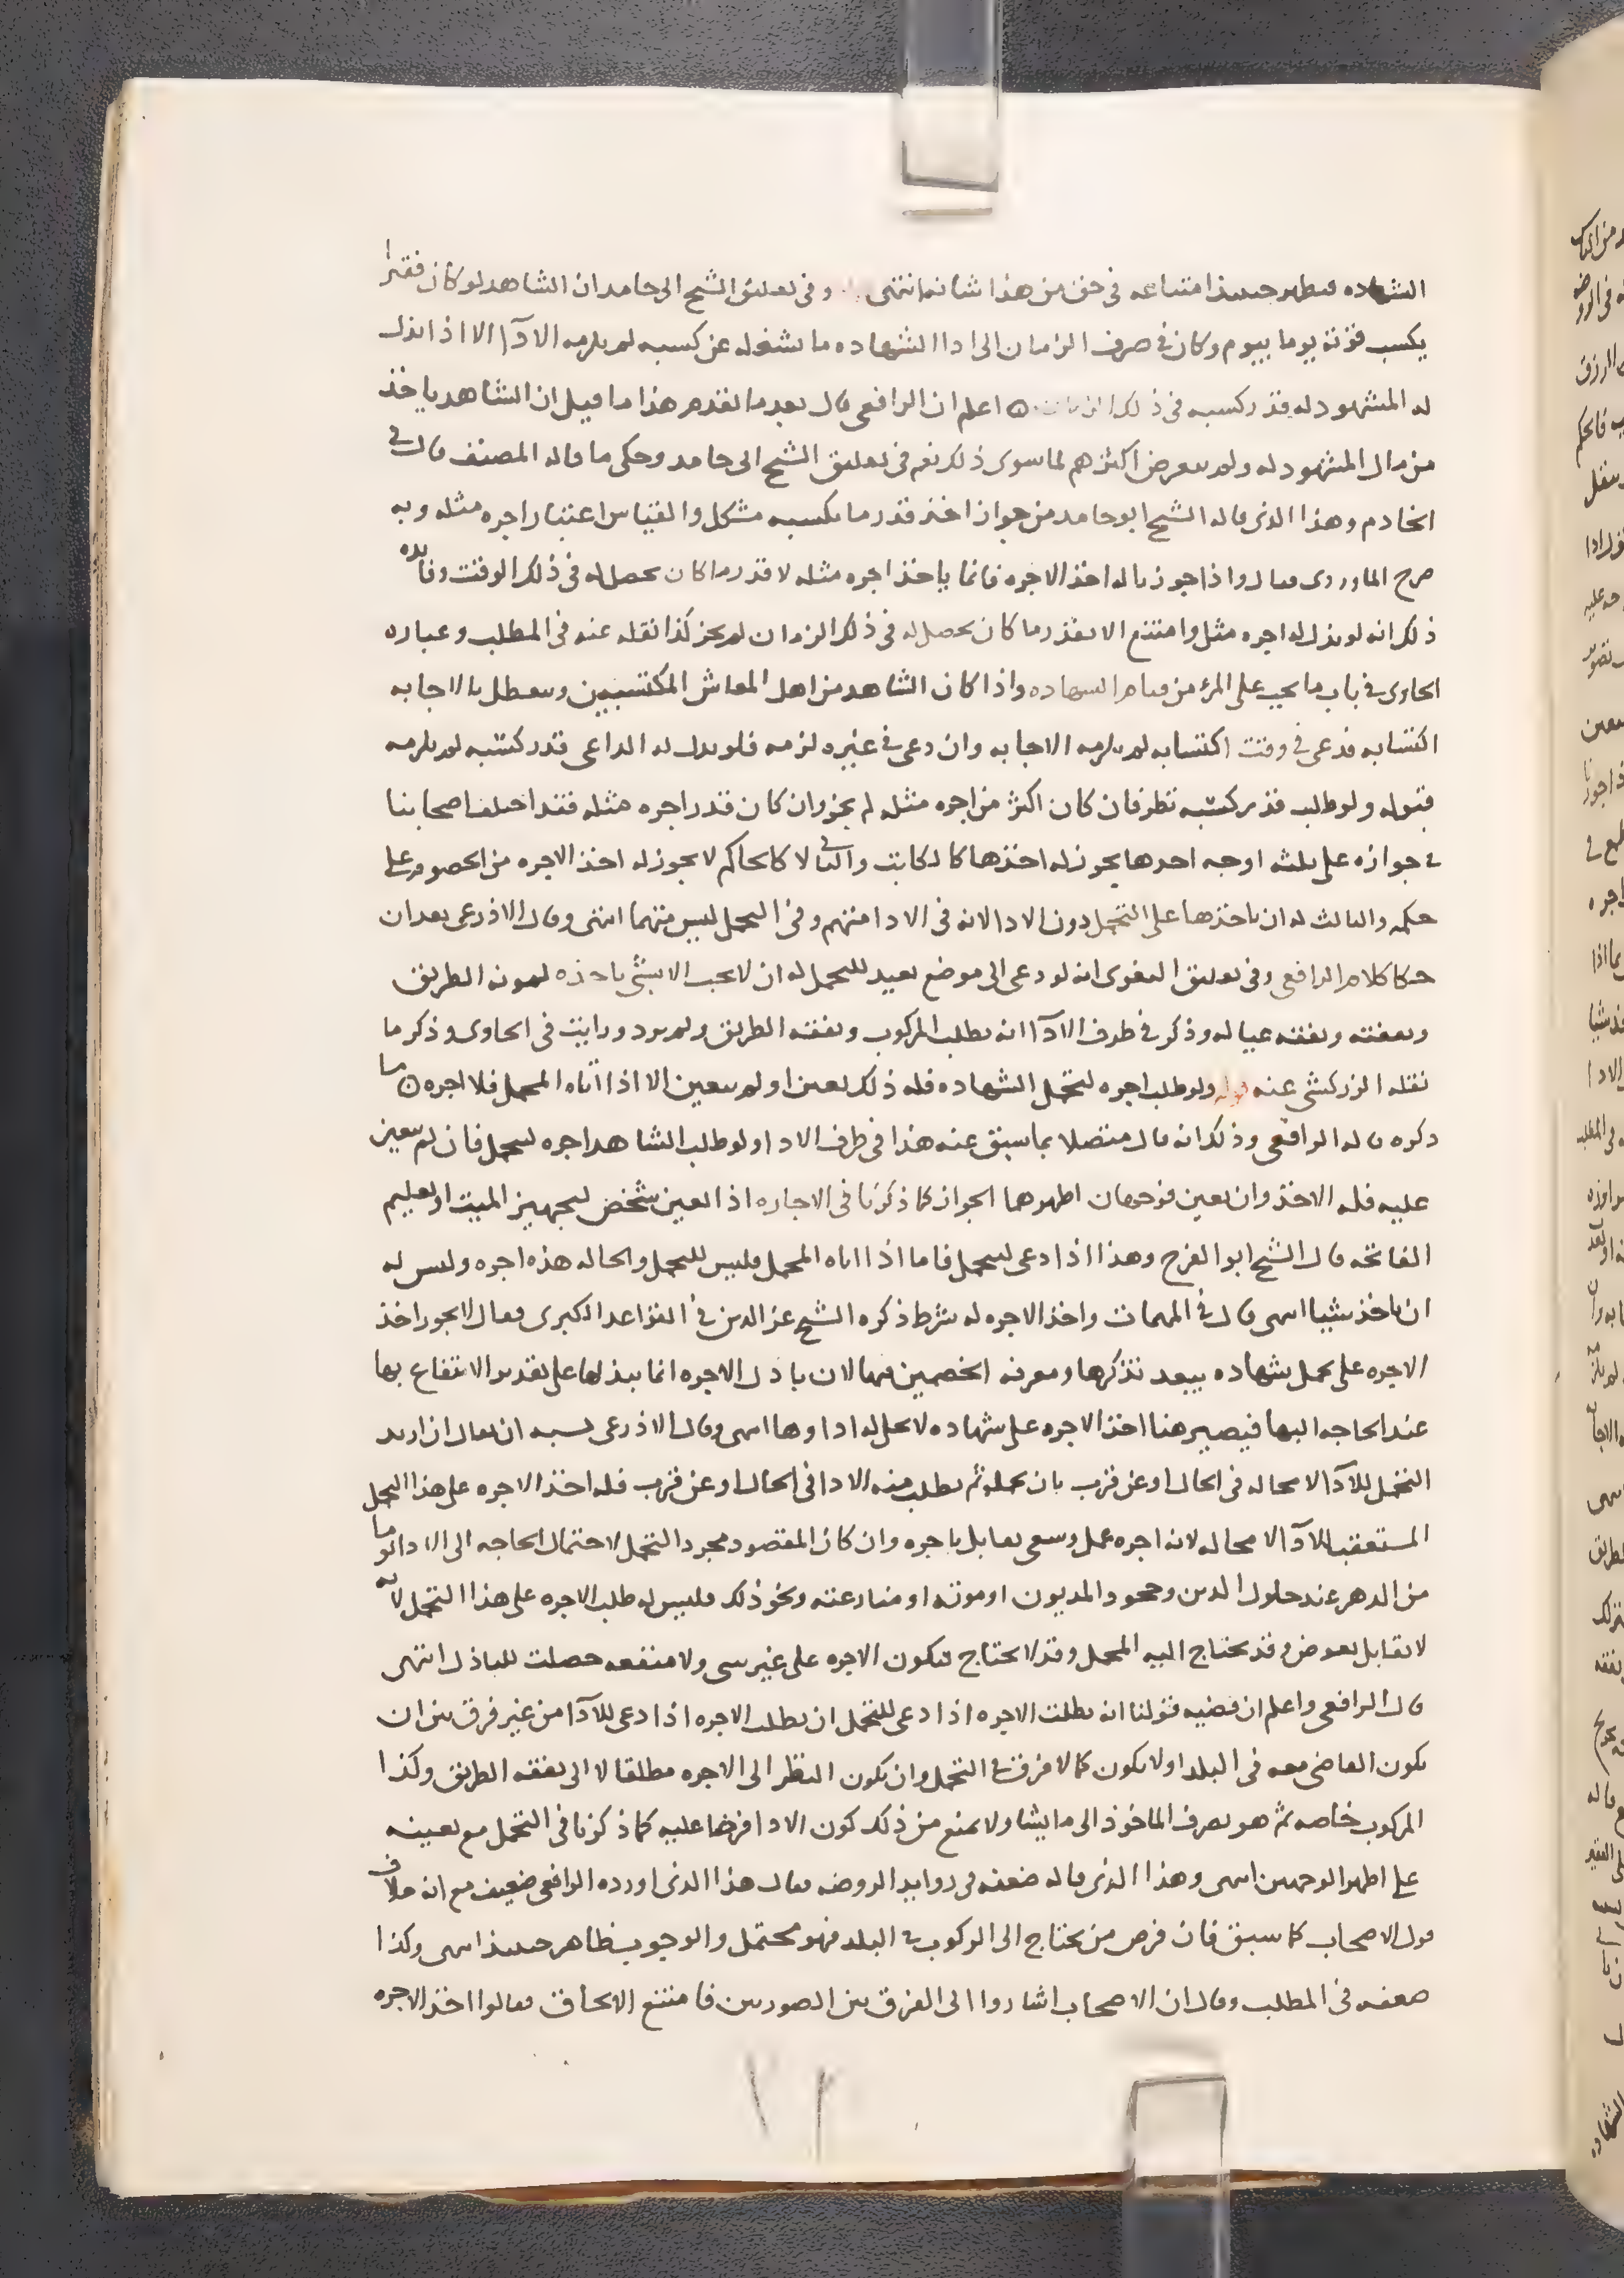 الشهاده فيظهر حينئذ امتناعه في حق من هذا شانه انتهى وفي تعليق الشيخ ابي حامد ان الشاهد لو كان فقيرا
يكسب قوته يوما بيوم وكان في صرف الزمان الى ادا الشهاده ما يشغله عن كسبه لم يلزمه الادآ الا اذا بذل
له المشهود له قدر كسبه في ذلك الزمان اعلم ان الرافعي قال بعد ما تقدم هذا ما قيل ان الشاهد ياخذ
من مال المشهود له ولم يتعرض اكثرهم لما سوى ذلك نعم في تعليق الشيخ ابي حامد وحكى ما قاله المصنف قال في
الخادم وهذا الذي قاله الشيخ ابو حامد من جواز اخذ قدر ما يكسبه مشكل والقياس اعتبار اجره مثله وبه
صرح الماوردي فقال واذا جوزنا له اخذ الاجره فانما ياخذ اجره مثله لا قدر ما كان يحصل له في ذلك الوقت وفايده
ذلك انه لو بذل له اجره مثل وامتنع الا بقدر ما كان يحصل له في ذلك الزمان لم يجز كذا نقله عنه في المطلب وعباره
الحاوى في باب ما يجب على المرء من قيام الشهاده واذا كان الشاهد من اهل المعاش المكتسبين ويتعطل بالاجابه
اكتسابه فدعى في وقت اكتسابه لم يلزمه الاجابه وان دعى في غيره لزمه فلو بذل له الداعى قدر كسبه لم يلزمه
قبوله ولو طلب قدر كسبه نظر فان كان اكثر من اجره مثله لم يجز وان كان قدر اجره مثله فقد اختلف اصحابنا
في جوازه على ثلثه اوجه احدها يجوز له اخذها كالكاتب والثاني لا كالحاكم لا يجوز له اخذ الاجره من الخصوم على
حكمه والثالث له ان ياخذها على التحمل دون الادا لانه في الادا متهم وفي التحمل ليس متهما انتهى وقال الاذرعى بعد ان
حكا كلام الرافعي وفي تعليق البغوى انه لو دعى الى موضع بعيد للتحمل له ان لا يجب الا بشئ ياخذه لمونه الطريق
ونفقته ونفقه عياله وذكر في طرف الادآ انه يطلب المركوب ونفقه الطريق ولم يرد ورايت في الحاوى وذكر ما
نقله الزركشى عنه قوله ولو طلب اجره لتحمل الشهاده فله ذلك تعين او لم يتعين الا اذا اتاه المحمل فلا اجره ما
ذكره قاله الرافعي وذلك انه قال متصلا بما سبق عنه هذا في طرف الادا ولو طلب الشاهد اجره ليتحمل فان لم يتعين
عليه فله الاخذ وان تعين فوجهان اظهرهما الجواز كما ذكرنا في الاجاره اذا تعين شخص لتجهيز الميت او تعليم
الفاتحه قال الشيخ ابو الفرج وهذا اذا دعى ليتحمل فاما اذا اتاه المحمل فليس للتحمل والحاله هذه اجره وليس له
ان ياخذ شيا انتهى قال في المهمات واخذ الاجره له شرط ذكره الشيخ عز الدين في القواعد الكبرى فقال لا يجوز اخذ
الاجره على تحمل شهاده يبعد تذكرها ومعرفه الخصمين فيها لان باذل الاجره انما يبذلها على تقدير الانتفاع بها
عند الحاجه اليها فيصير هنا اخذ الاجره على شهاده لا يحل له اداوها انتهى وقال الاذرعى يشبه ان يقال ان اريد
التحمل للادآ لا محاله في الحال او عن قرب بان تحمله ثم يطلب منه الادا في الحال او عن قرب فله اخذ الاجره على هذا التحمل
المستعقب للادآ لا محاله لانه اجره عمل وسعى يقابل باجره وان كان المقصود مجرد التحمل لاحتمال الحاجه الى الادا يوما
من الدهر عند حلول الدين وجحود المديون او موته او منازعته ونحو ذلك فليس له طلب الاجره على هذا التحمل لانه
لا يقابل بعوض وقد يحتاج اليه المحمل وقد لا يحتاج فتكون الاجره على غير شى ولا منفعه حصلت للباذل انتهى
قال الرافعي واعلم ان قضيه قولنا انه يطلب الاجره اذا دعى للتحمل ان يطلب الاجره اذا دعى للادآ من غير فرق بين ان
يكون القاضى معه في البلد اولا يكون كما لا فرق في التحمل وان يكون النظر الى الاجره مطلقا لا الى نفقه الطريق وكذا
المركوب خاصه ثم هو يصرف الماخوذ الى ما يشا ولا يمنع من ذلك كون الادا فرضا عليه كما ذكرنا في التحمل مع تعينه
على اظهر الوجهين انتهى وهذا الذي قاله ضعفه في زوايد الروضه فقال هذا الذي اورده الرافعي ضعيف مع انه خلاف
قول الاصحاب كما سبق فان فرض من يحتاج الى الركوب في البلد فهو محتمل والوجوب ظاهر حينئذ انتهى وكذا
ضعفه في المطلب وقال ان الاصحاب اشاروا الى الفرق بين الصورتين فامتنع الالحاق فقالوا اخذ الاجره